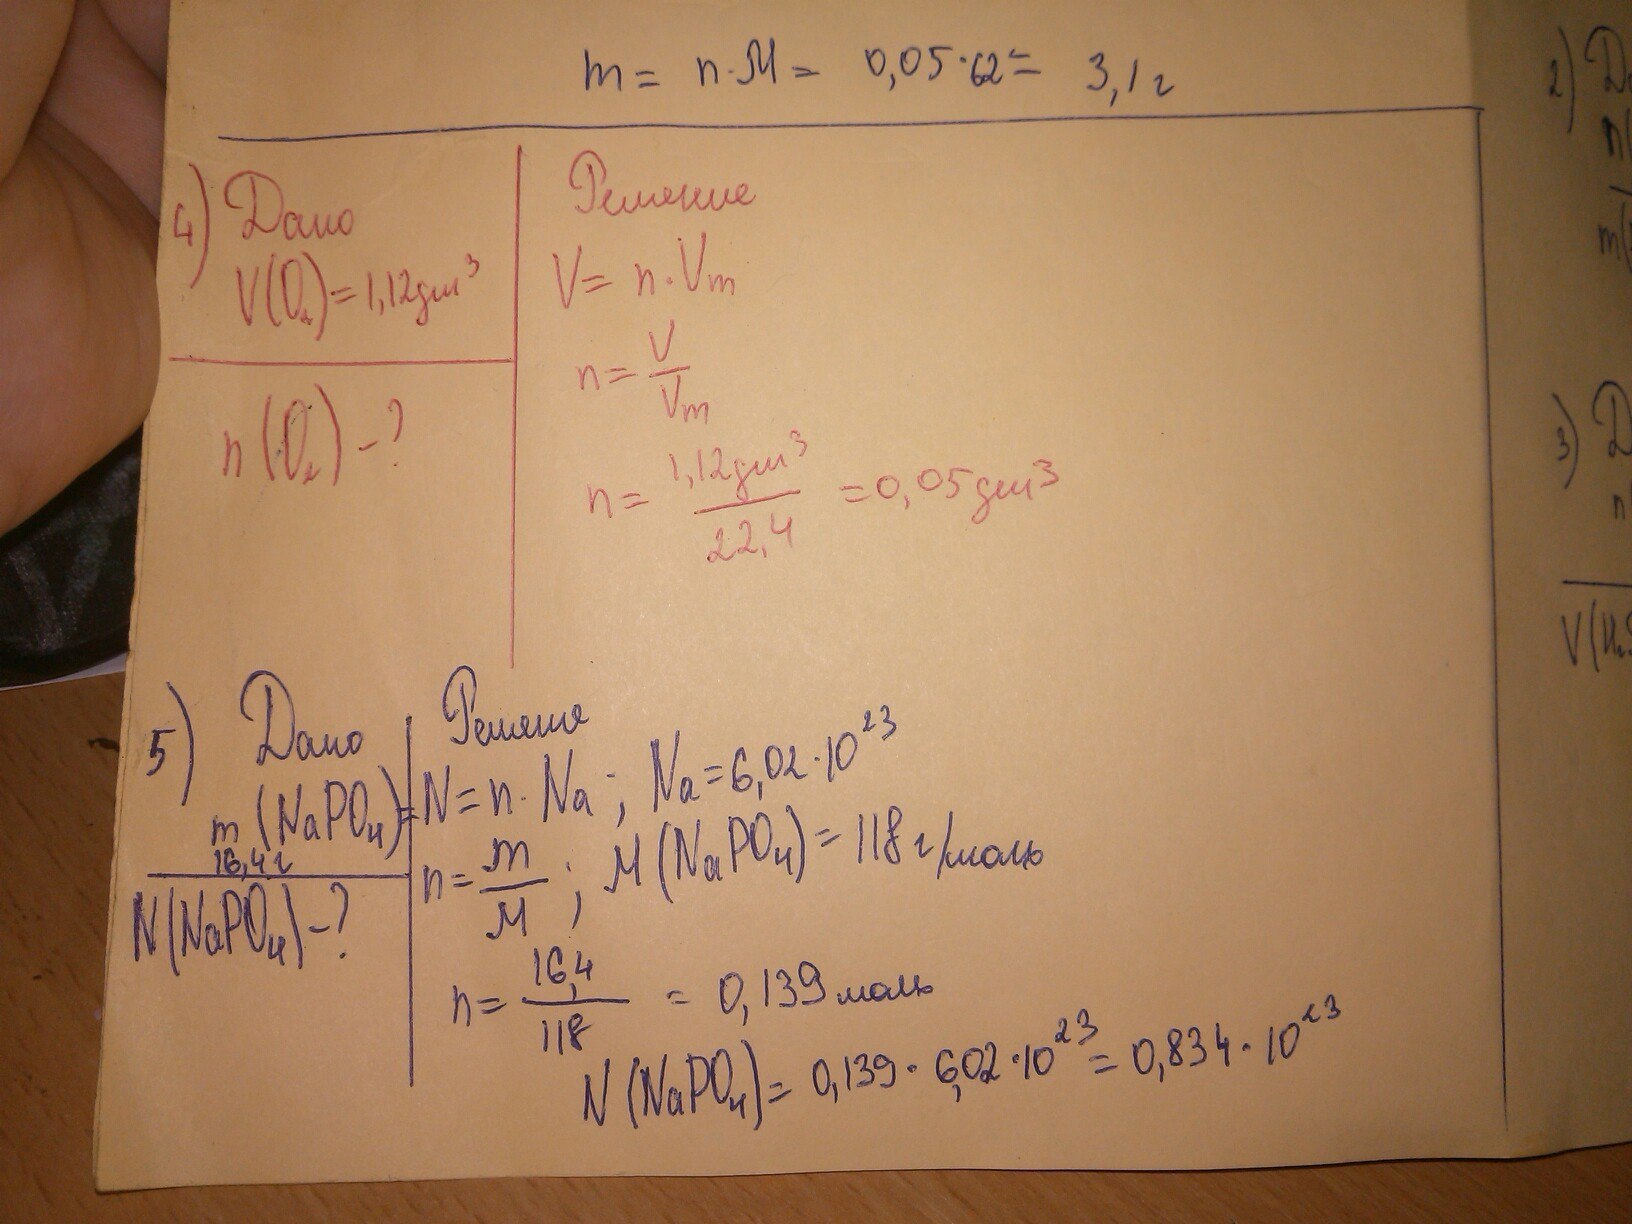 m = n·M = 0,05·62 = 3,1 г
4) Дано
V(O₂) = 1,12 дм³
n(O₂) - ?
Решение
V = n·Vm
n = V/Vm
n = 1,12 дм³/22,4 = 0,05 дм³
5) Дано
m(NaPO₄) =
16,4 г
N(NaPO₄) - ?
Решение
N = n·Na; Na = 6,02·10²³
n = m/M; M(NaPO₄) = 118 г/моль
n = 16,4/118 = 0,139 моль
N(NaPO₄) = 0,139·6,02·10²³ = 0,834·10²³
2)
3)